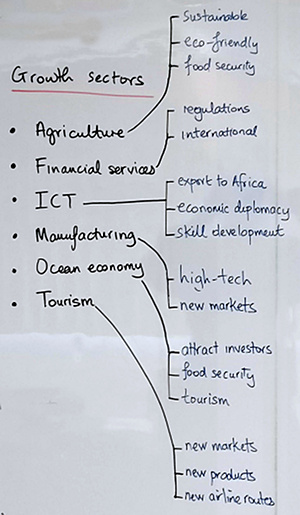 Growth sectors
• Agriculture
sustainable
eco-friendly
food security
• Financial services
regulations
international
• ICT
export to Africa
economic diplomacy
skill development
• Manufacturing
high-tech
new markets
• Ocean economy
attract investors
food security
tourism
• Tourism
new markets
new products
new airline routes